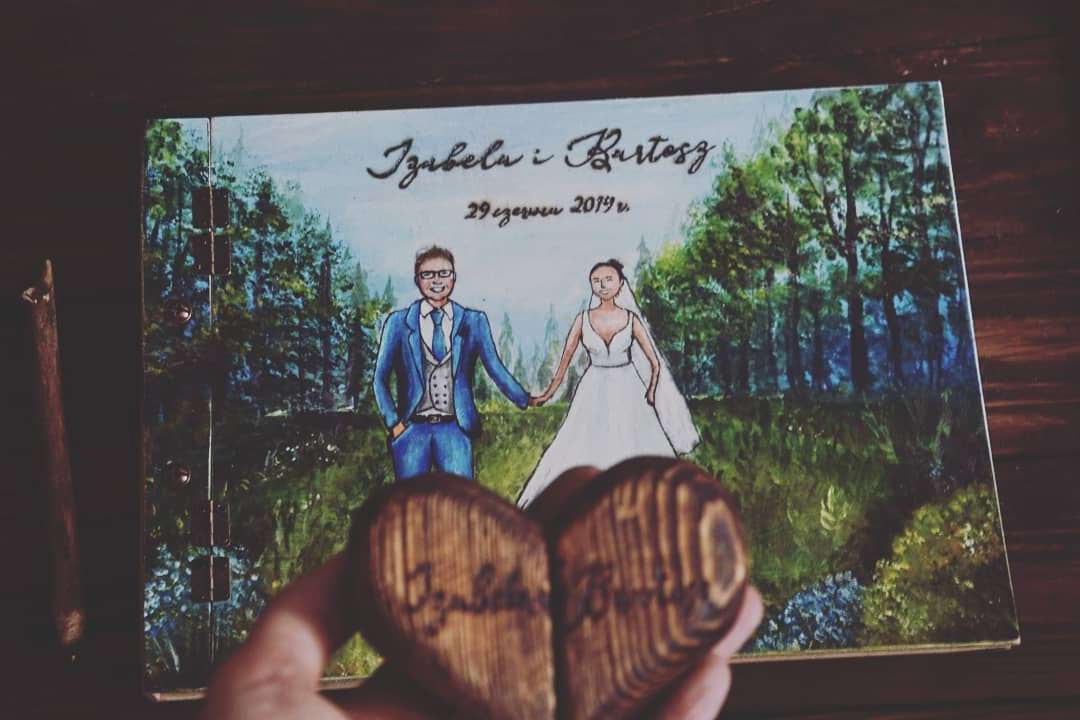 Izabela i Bartosz
29 czerwca 2019 r.
Izabela